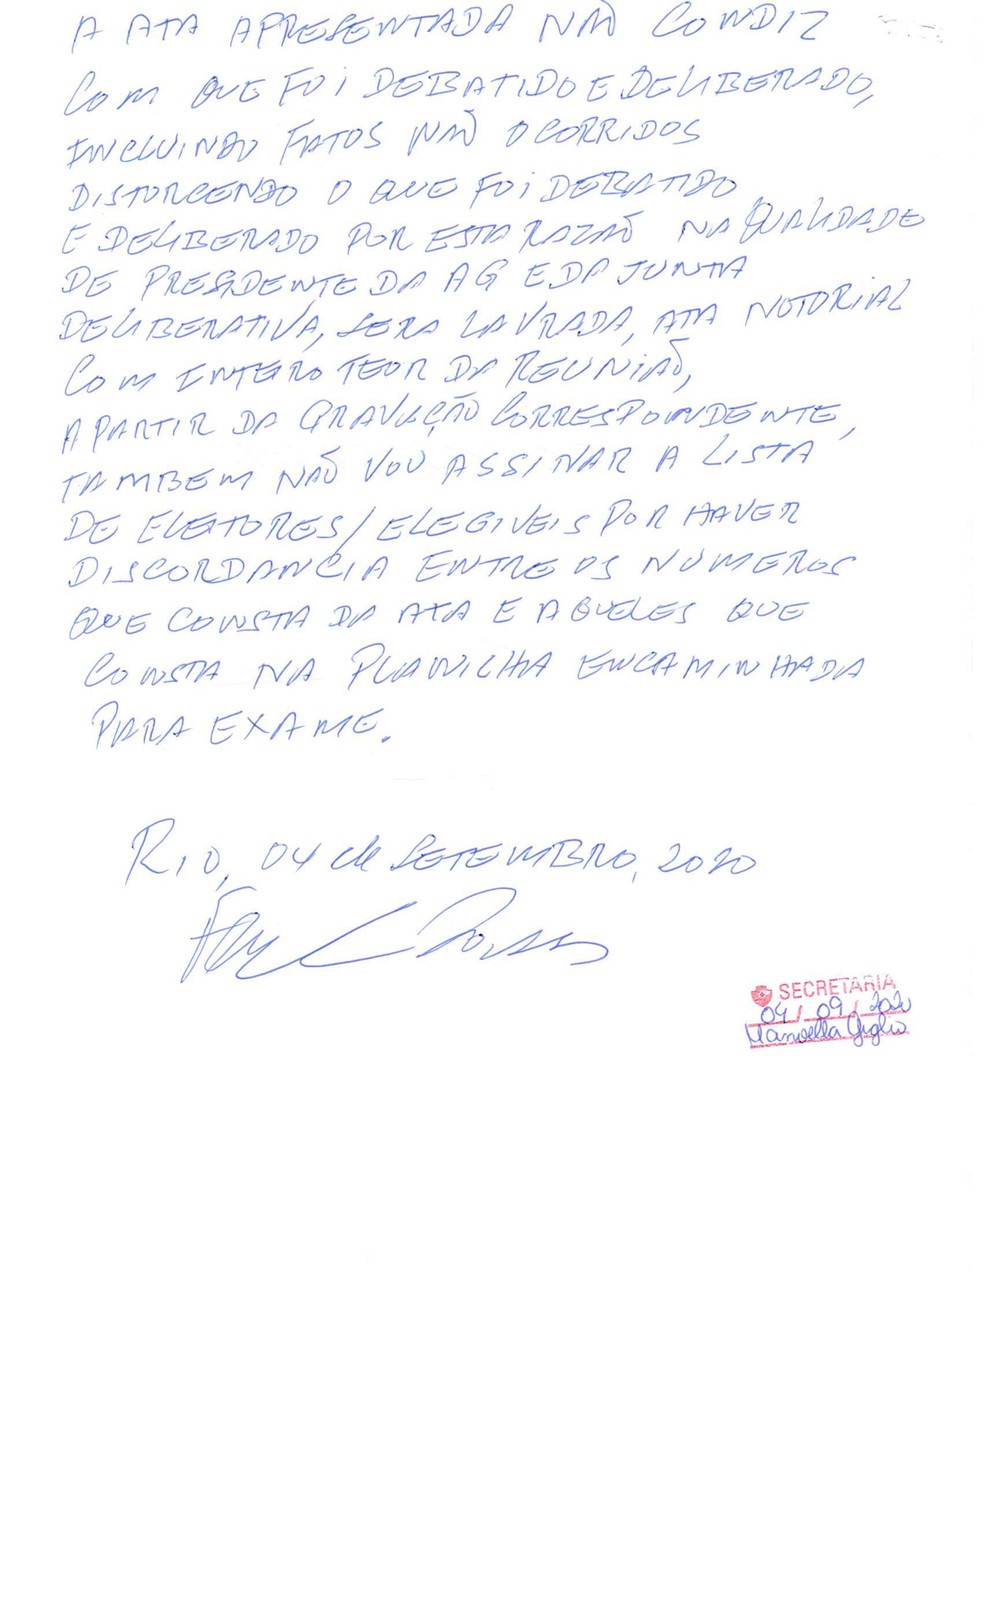 A ATA APRESENTADA NÃO CONDIZ
COM QUE FOI DEBATIDO E DELIBERADO,
INCLUINDO FATOS NÃO OCORRIDOS
DISTORCENDO O QUE FOI DEBATIDO
E DELIBERADO POR ESTA RAZÃO NA QUALIDADE
DE PRESIDENTE DA AG E DA JUNTA
DELIBERATIVA, SERA LAVRADA, ATA NOTORIAL
COM INTEIRO TEOR DA REUNIÃO,
A PARTIR DA GRAVAÇÃO CORRESPONDENTE,
TAMBEM NÃO VOU ASSINAR A LISTA
DE ELEITORES/ELEGIVEIS POR HAVER
DISCORDANCIA ENTRE OS NÚMEROS
QUE CONSTA DA ATA E AQUELES QUE
CONSTA NA PLANILHA ENCAMINHADA
PARA EXAME.
RIO, 04 de SETEMBRO, 2020
SECRETARIA
04/09/2020
Manoella Giglio